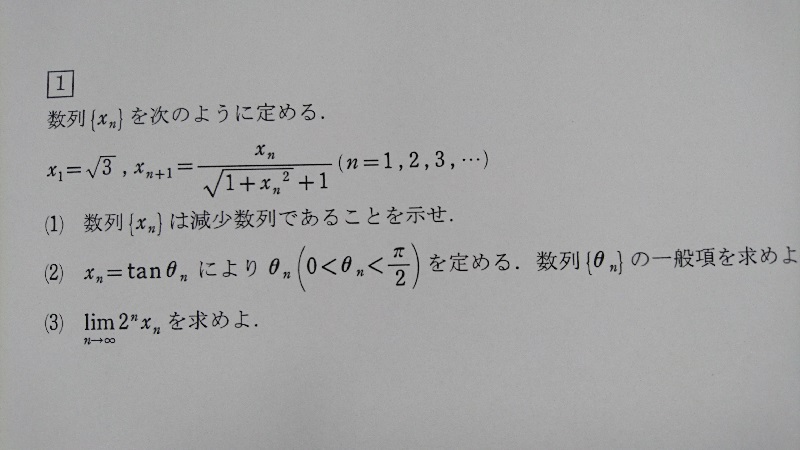 1
数列{xₙ}を次のように定める.
x₁=√3 , xₙ₊₁= xₙ / (√(1+xₙ²) +1) (n=1,2,3,⋯)
(1) 数列{xₙ}は減少数列であることを示せ.
(2) xₙ=tanθₙ により θₙ(0<θₙ<π/2)を定める. 数列{θₙ}の一般項を求めよ
(3) lim n→∞ 2ⁿxₙ を求めよ.